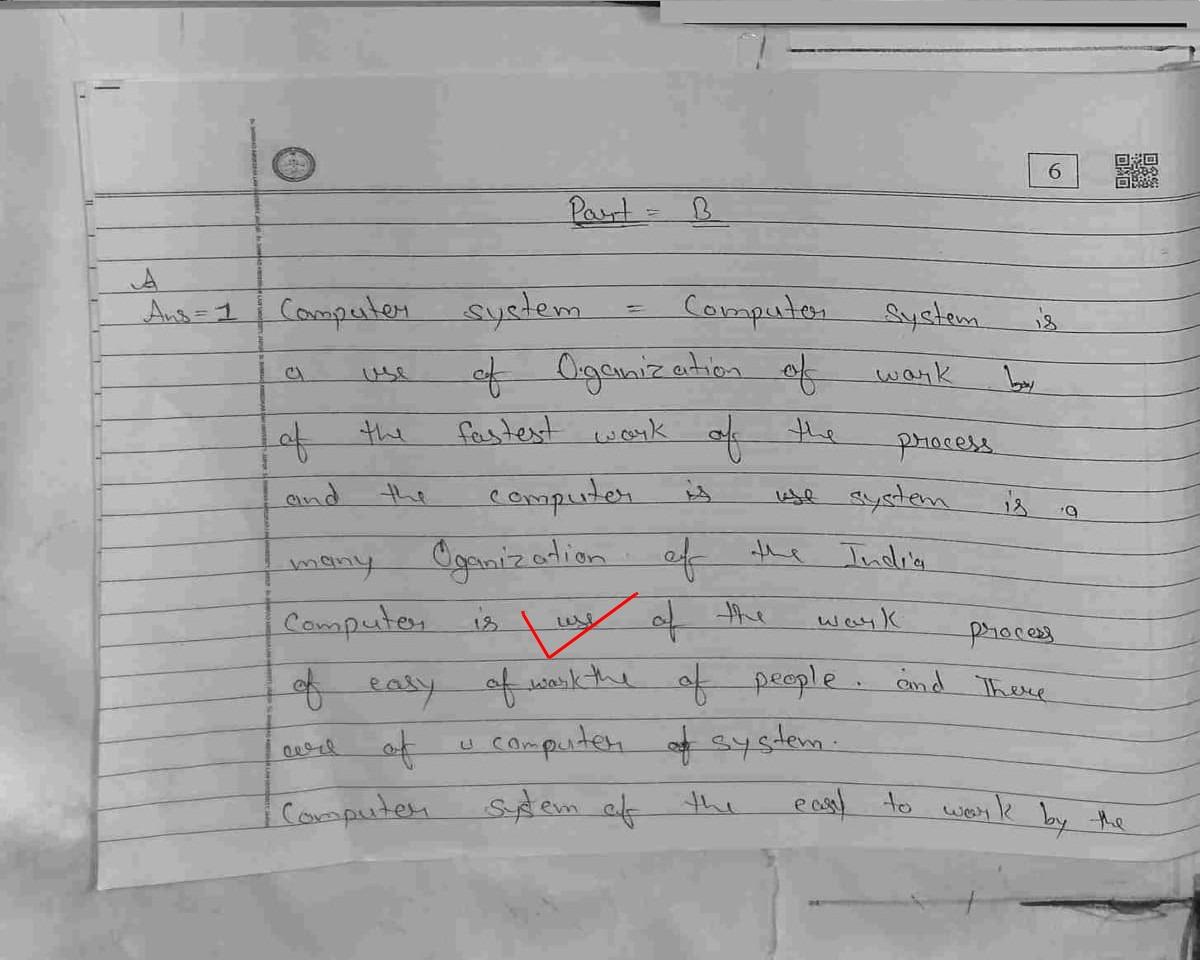 6
Part = B
A
Ans = 1 Computer system = Computer system is
a use of Oganization of work by
of the fastest work of the process
and the computer is use system is a
many Oganization of the India
Computer is use of the work process
of easy of work the of people. and There
are of u computer of system.
Computer system of the easy to work by the